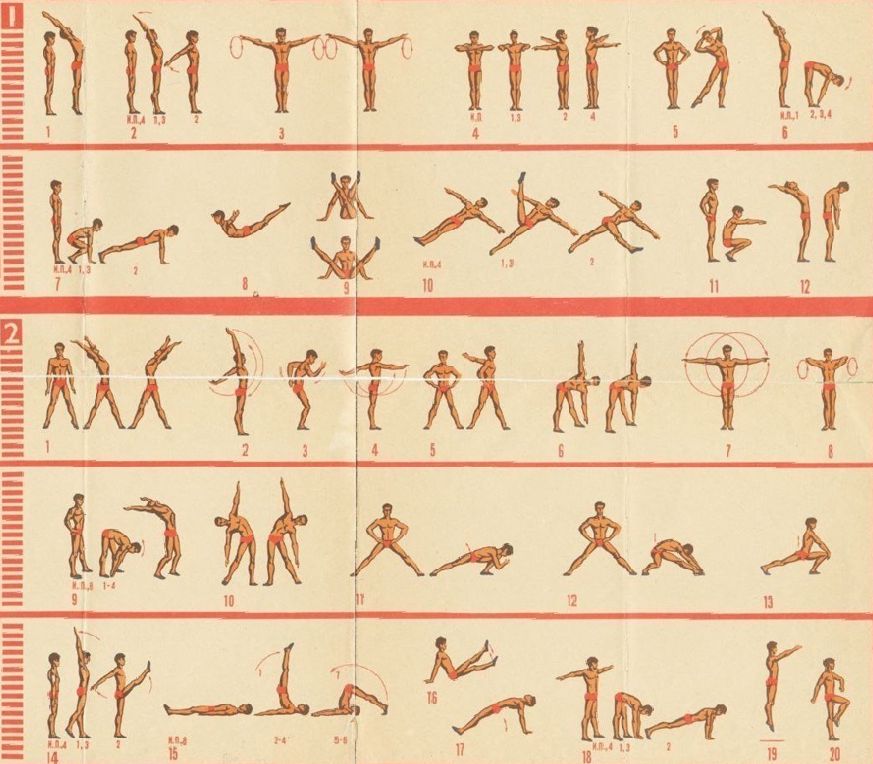 1
И.П.,4 1,3 2 И.П. 1,3 2 4 И.П.,1 2,3,4
1 2 3 4 5 6
И.П.,4 1,3 2 И.П.,4 1,3 2
7 8 9 10 11 12
2
1 2 3 4 5 6 7 8
И.П.,8 1-4
9 10 11 12 13
16
И.П.,4 1,3 2 И.П.,8 2-4 5-6 17 И.П.,4 1,3 2
14 15 18 19 20